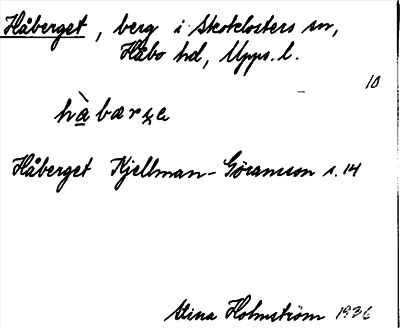 Håberget, berg i Skoklosters sn,
Håbo hd, Upps. l.
10
Håberget Kjellman-Göranson s. 14
Stina Holmström 1936